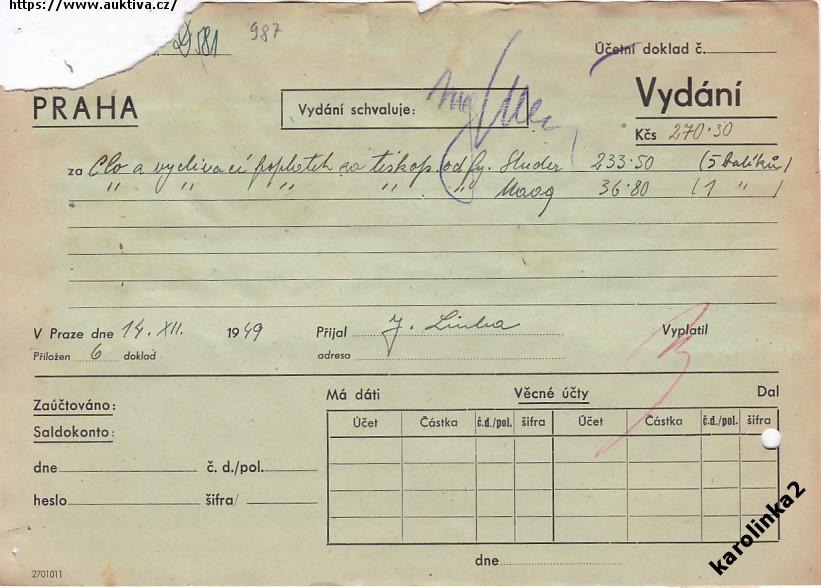 https://www.auktiva.cz/
987
PRAHA
Vydání schvaluje:
Účetní doklad č.
Vydání
Kčs 270·30
za Clo a vyclívací poplatek za tiskop. od fy. Studer 233·50 (5 balíků)
" " " " " " Maag 36·80 (1 " )
V Praze dne 14. XII. 1949 Přijal J. Linha Vyplatil
Přiložen 6 doklad adresa
Zaúčtováno:
Saldokonto:
dne č. d./pol.
heslo šifra/
Má dáti Věcné účty Dal
Účet Částka č.d./pol. šifra Účet Částka č.d./pol. šifra
dne
2701011
karolinka2